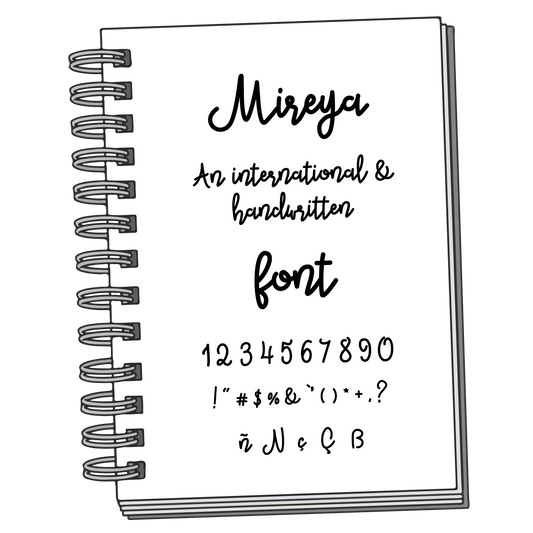 Mireya
An international &
handwritten
font
1234567890
!"#$%&`'()*+,?
ñ N ç Ç ß